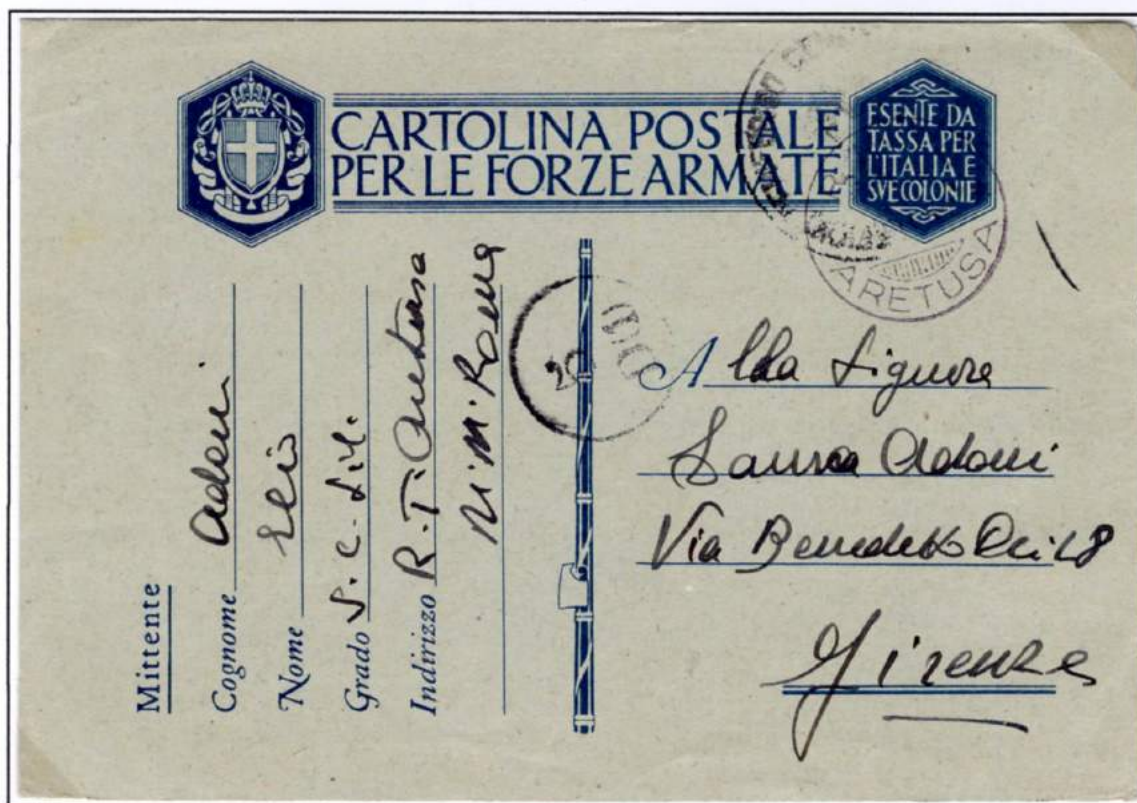 CARTOLINA POSTALE
PER LE FORZE ARMATE
ESENTE DA
TASSA PER
L'ITALIA E
SVE COLONIE
ARETUSA
20
Mittente
Cognome Adoni
Nome Elio
Grado S.C.
Indirizzo R.T. Aretusa
Roma
Alla Signora
Laura Adoni
Via Benedetto 18
Firenze